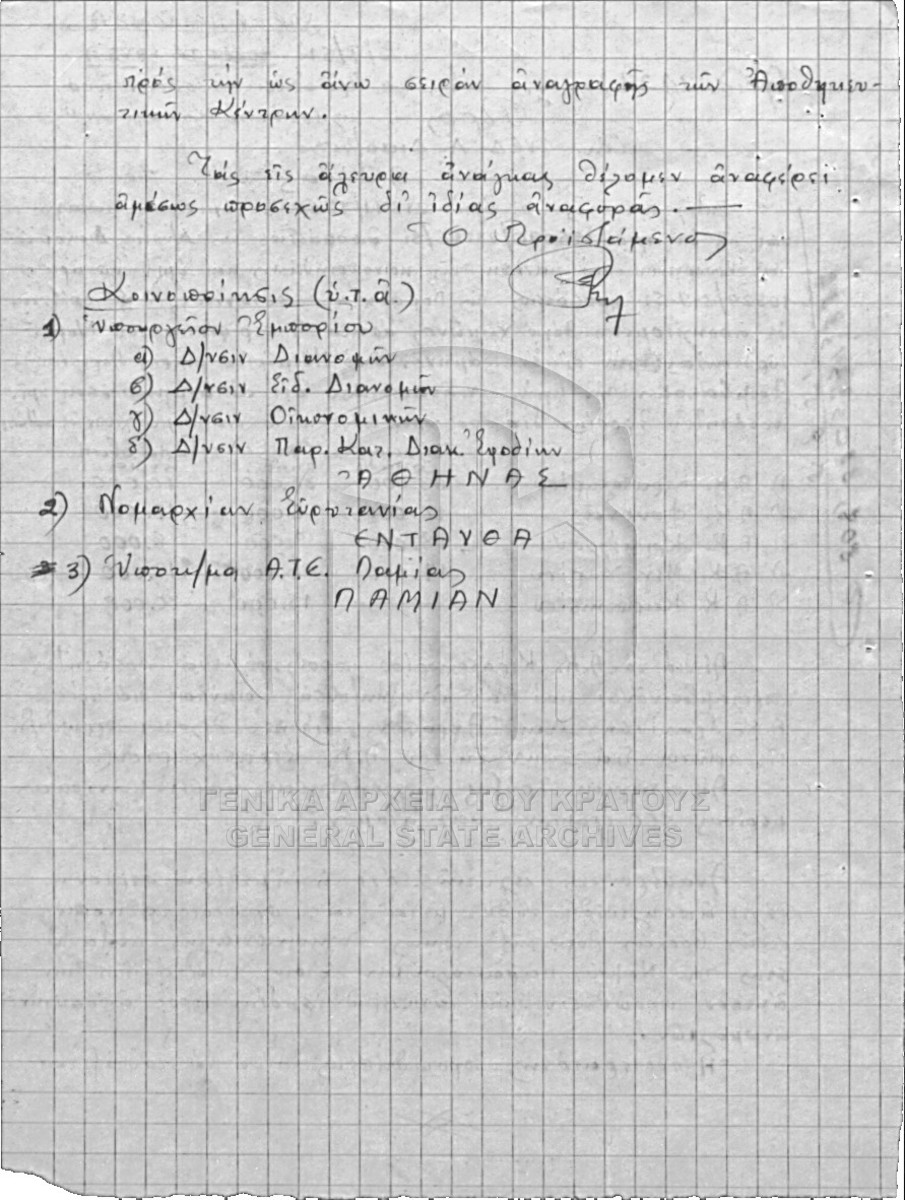 πρός τήν ὡς ἄνω σειράν ἀναγραφῆς τῶν Ἀποθηκευ-
τικῶν Κέντρων.
Τάς εἰς ἄλευρα ἀνάγκας θέλομεν ἀναφέρει
ἀμέσως προσεχῶς δι' ἰδίας ἀναφορᾶς. —
Ὁ Προϊστάμενος
Κοινοποίησις (ὑ.τ.ἀ.)
1) Ὑπουργεῖον Ἐμπορίου
α) Δ/νσιν Διανομῶν
β) Δ/νσιν Εἰδ. Διανομῶν
γ) Δ/νσιν Οἰκονομικῶν
δ) Δ/νσιν Παρ. Κατ. Διακ. Ἐφοδίων
ἈΘΗΝΑΣ
2) Νομαρχίαν Εὐρυτανίας
ΕΝΤΑΥΘΑ
3) Ὑποκ/μα Α.Τ.Ε. Λαμίας
ΛΑΜΙΑΝ
ΓΕΝΙΚΑ ΑΡΧΕΙΑ ΤΟΥ ΚΡΑΤΟΥΣ
GENERAL STATE ARCHIVES